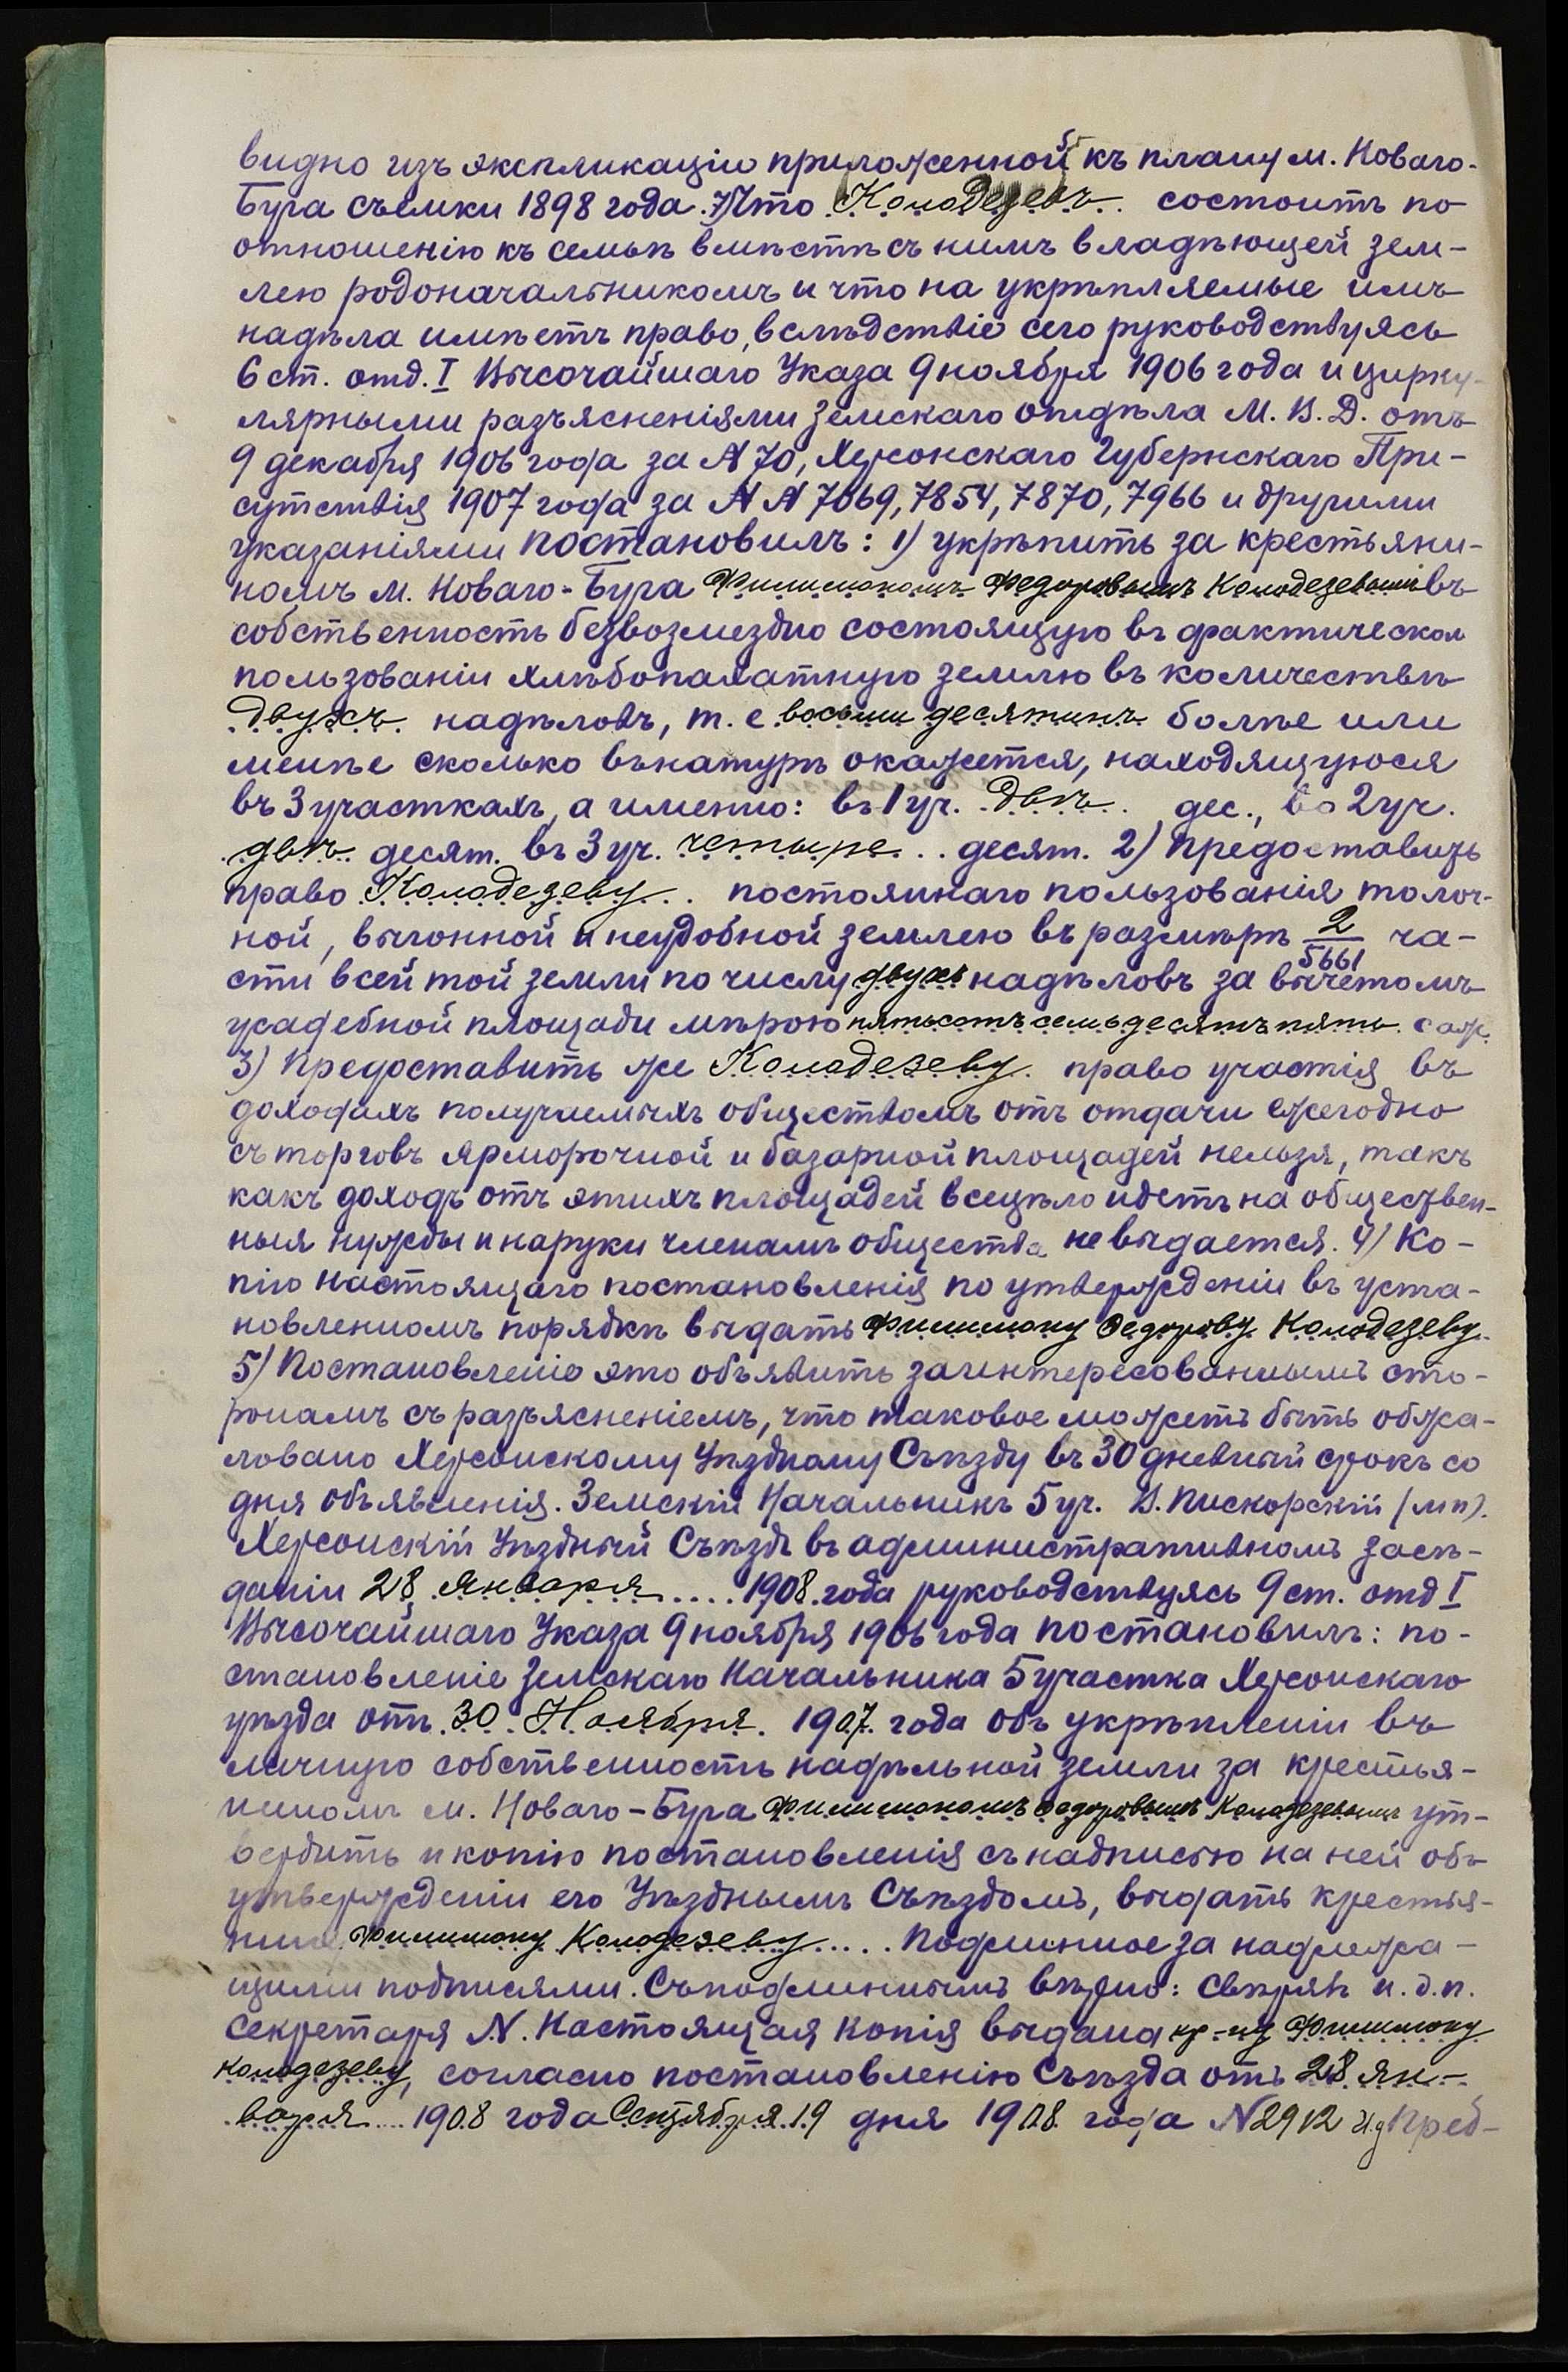 видно изъ экспликаціи приложенной къ плану м. Новаго-
Буга съемки 1898 года. 7) Что Колодезевъ состоитъ по
отношенію къ семьѣ вмѣстѣ съ нимъ владѣющей зем-
лею родоначальникомъ и что на укрѣпляемые имъ
надѣла имѣетъ право, вслѣдствіе сего руководствуясь
6 ст. отд. I Высочайшаго Указа 9 ноября 1906 года и цирку-
лярными разъясненіями Земскаго отдѣла М. В. Д. отъ
9 декабря 1906 года за N 70, Херсонскаго Губернскаго При-
сутствія 1907 года за N N 7069, 7854, 7870, 7966 и другими
указаніями постановилъ: 1) укрѣпить за крестьяни-
номъ м. Новаго-Буга Филимономъ Федоровымъ Колодезевымъ въ
собственность безвозмездно состоящую въ фактическом
пользованіи хлѣбопахатную землю въ количествѣ
двухъ надѣловъ, т. е. восьми десятинъ болѣе или
менѣе сколько въ натурѣ окажется, находящуюся
въ 3 участкахъ, а именно: въ 1 уч. двѣ дес., во 2 уч.
двѣ десят. въ 3 уч. четыре десят. 2) Предоставить
право Колодезеву постояннаго пользованія толоч-
ной, выгонной и неудобной землею въ размѣрѣ 2/5661 ча-
сти всей той земли по числу двухъ надѣловъ за вычетомъ
усадебной площади мѣрою пятьсотъ семьдесятъ пять саж.
3) Предоставить же Колодезеву право участія въ
доходахъ получаемыхъ обществомъ отъ отдачи ежегодно
съ торговъ ярморочной и базарной площадей нельзя, такъ
какъ доходъ отъ этихъ площадей всецѣло идетъ на обществен-
ныя нужды и на руки членамъ общества не выдается. 4) Ко-
пію настоящаго постановленія по утвержденіи въ уста-
новленномъ порядкѣ выдать Филимону Федорову Колодезеву.
5) Постановленіе это объявить заинтересованнымъ сто-
ронамъ съ разъясненіемъ, что таковое можетъ быть обжа-
ловано Херсонскому Уѣздному Съѣзду въ 30 дневный срокъ со
дня объявленія. Земскій Начальникъ 5 уч. В. Пискорскій (мп).
Херсонскій Уѣздный Съѣздъ въ административномъ засѣ-
даніи 28 января 1908 года руководствуясь 9 ст. отд I
Высочайшаго Указа 9 ноября 1906 года постановилъ: по-
становленіе Земскаго Начальника 5 участка Херсонскаго
уѣзда отъ 30 Ноября 1907 года объ укрѣпленіи въ
личную собственность надѣльной земли за крестья-
ниномъ м. Новаго-Буга Филимономъ Федоровымъ Колодезевымъ ут-
вердить и копію постановленія съ надписью на ней объ
утвержденіи его Уѣзднымъ Съѣздомъ, выдать крестья-
нину Филимону Колодезеву..... Подлинное за надлежа-
щими подписями. Съ подлиннымъ вѣрно: свѣрялъ и. д. п.
Секретаря N. Настоящая копія выдана кр-ну Филимону
Колодезеву, согласно постановленію Съѣзда отъ 28 ян-
варя 1908 года Сентября 19 дня 1908 года N 2912 И.д Пред-